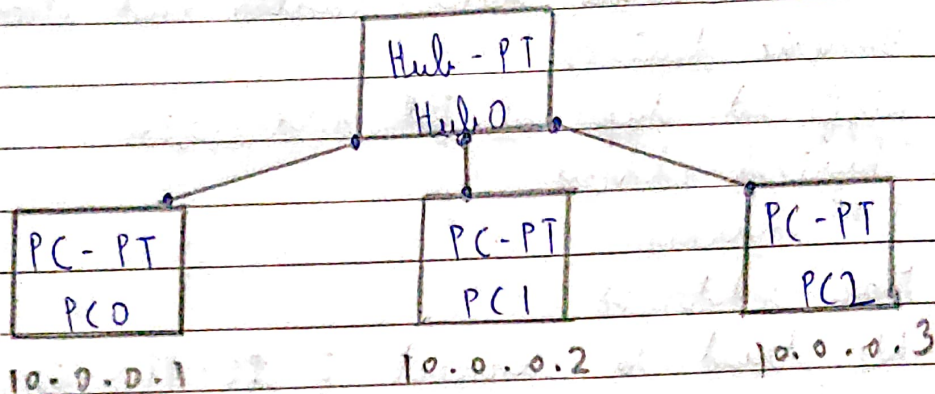 Hub-PT
Hub0
PC-PT
PC0
PC-PT
PC1
PC-PT
PC2
10.0.0.1
10.0.0.2
10.0.0.3